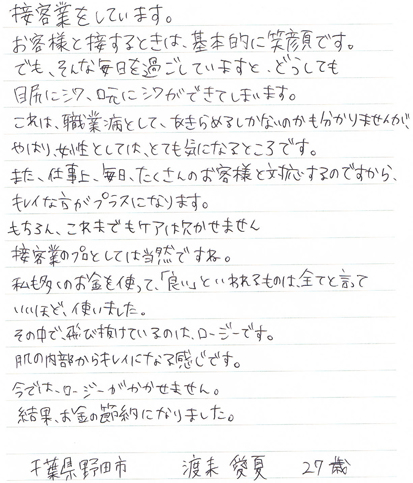 接客業をしています。
お客様と接するときは、基本的に笑顔です。
でも、そんな毎日を過ごしていますと、どうしても
目尻にシワ、口元にシワができてしまいます。
これは、職業病として、あきらめるしかないのかも分かりませんが、
やはり、女性としては、とても気になるところです。
また、仕事上、毎日、たくさんのお客様と対応するのですから、
キレイな方がプラスになります。
もちろん、これまでもケアは欠かせません
接客業のプロとしては当然ですね。
私も多くのお金を使って、「良い」といわれるものは、全てと言って
いいほど、使いました。
その中で、飛び抜けているのは、ロージーです。
肌の内部からキレイになる感じです。
今では、ロージーがかかせません。
結果、お金の節約になりました。
千葉県野田市 渡来 愛夏 27歳